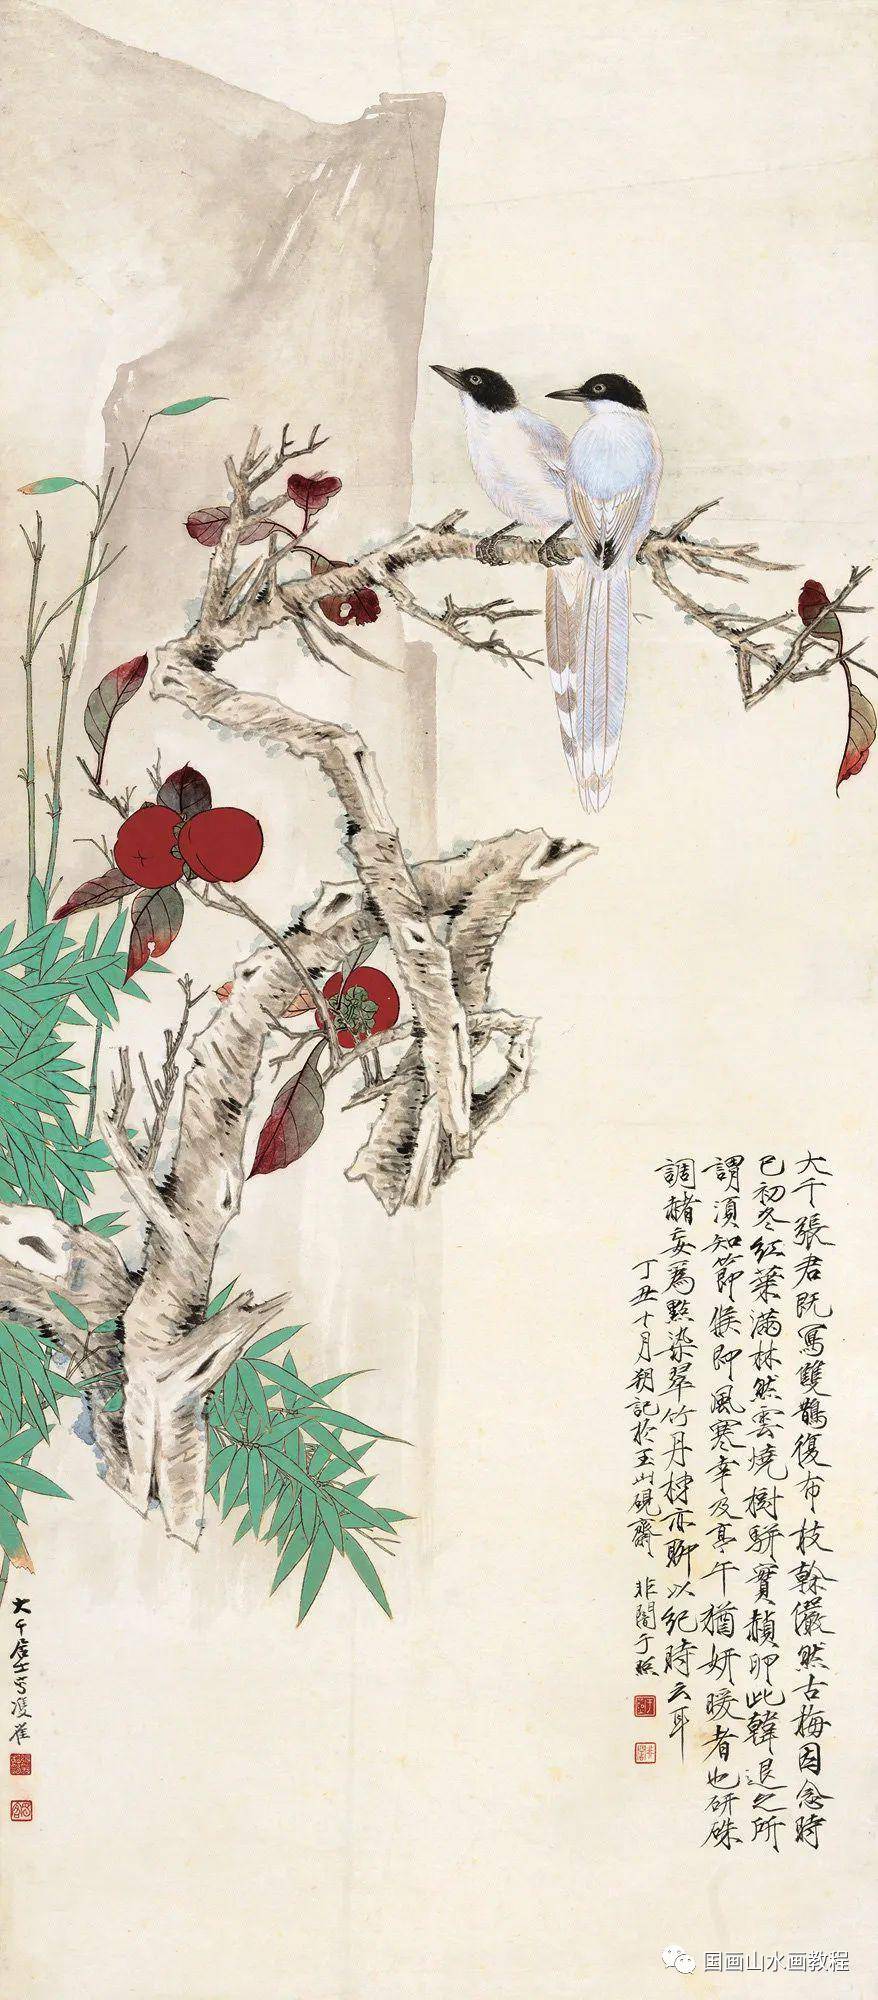 大千張君既寫雙鵲復布枝榦儼然古梅因念時
已初冬紅葉滿林然雲燒樹駢實赬卵此韓退之所
謂須知節候即風寒幸及亭午猶妍暖者也研硃
調赭妄為點染翠竹丹柿亦聊以紀時云耳
丁丑十月朔記於玉山硯齋 非闇于照
大千居士寫雙雀
国画山水画教程